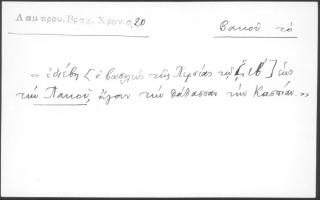 Λαμπρου, Βραχ. Χρον. σ, 20
Βακοῦ τὸ
" ἐδιέβη [ ὁ βασιλεὺς τῆς Περσίας ] ἕως
τὴν Πακοῦ, ἤγουν τὴν θάλασσαν τὴν Κασπίαν. "